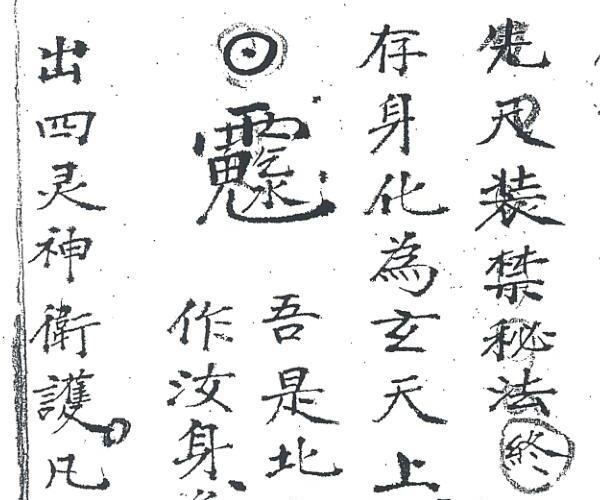 先尺装禁秘法終
存身化為玄天上
吾是北
作汝身
出四灵神衛護凡